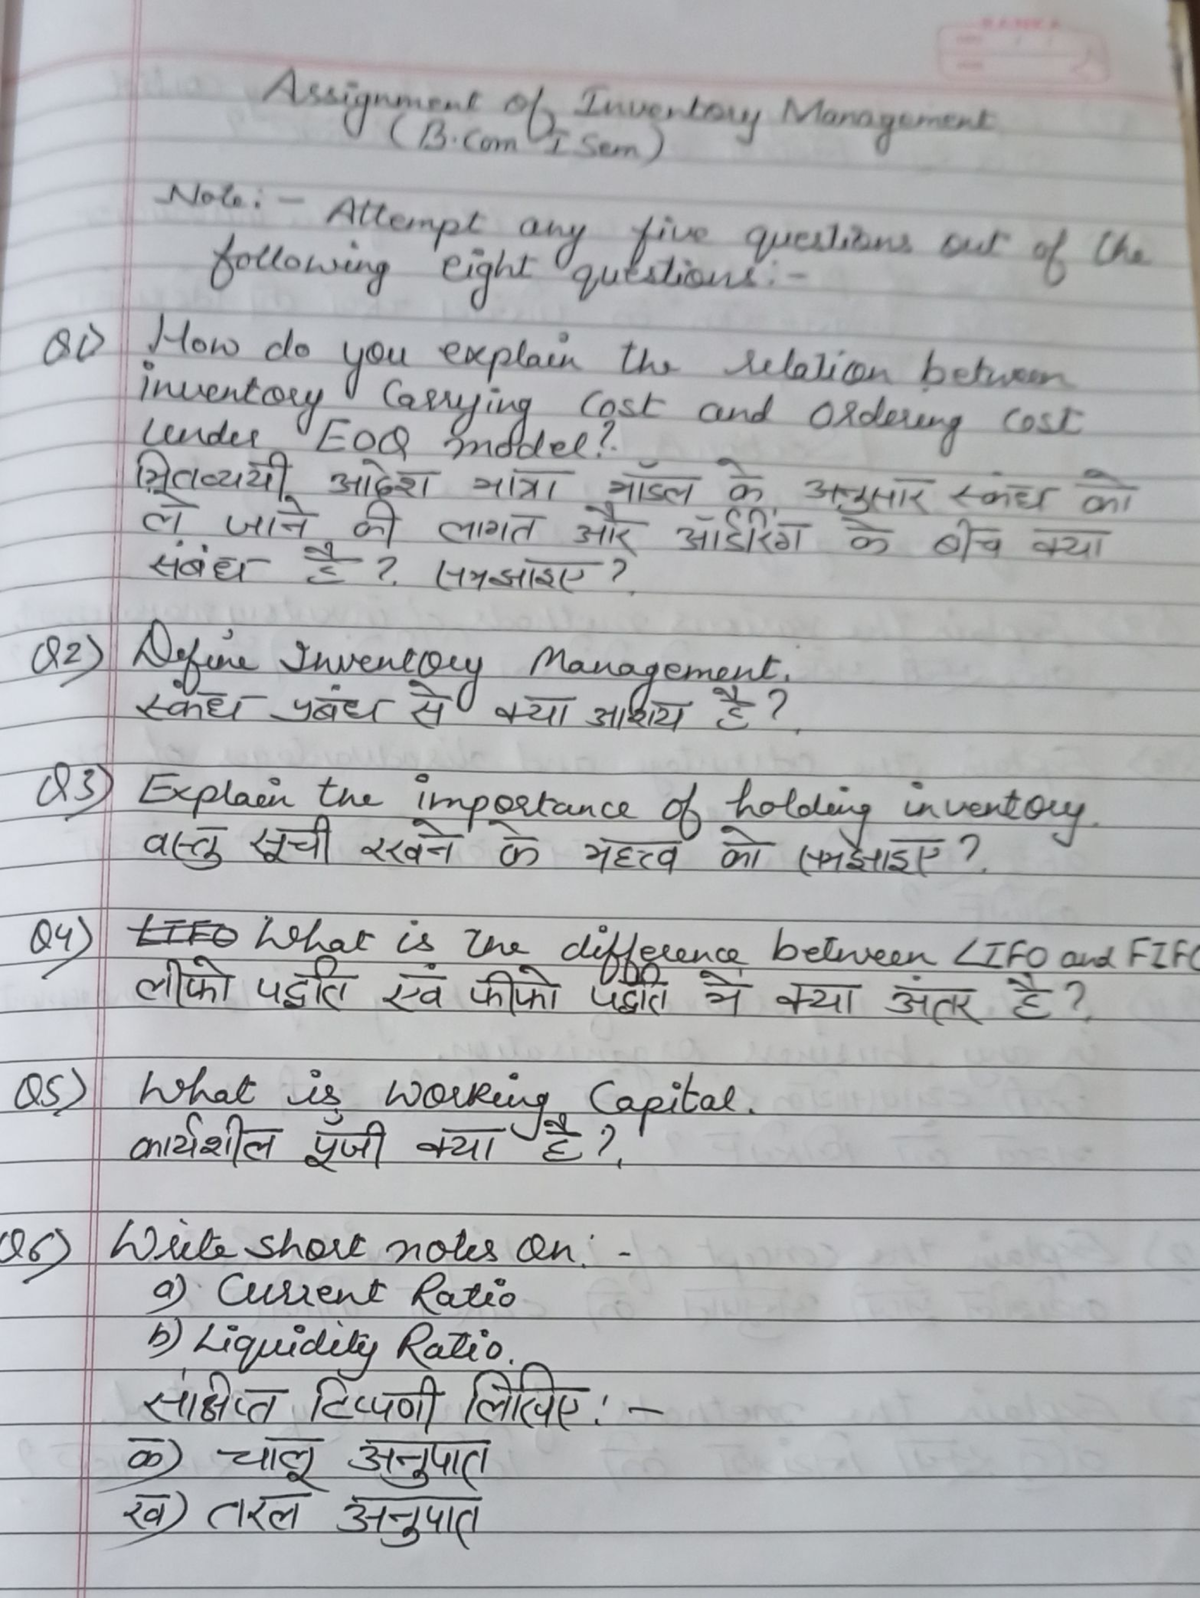 Assignment of Inventory Management
(B.Com I Sem)
Note:- Attempt any five questions out of the
following eight questions:-
Q1) How do you explain the relation between
inventory Carrying Cost and Ordering Cost
under EOQ model?
मितव्ययी आदेश मात्रा मॉडल के अनुसार स्कंध को
ले जाने की लागत और ऑर्डरिंग के बीच क्या
संबंध है? समझाइए?
Q2) Define Inventory Management.
स्कंध प्रबंध से क्या आशय है?
Q3) Explain the importance of holding inventory.
वस्तु सूची रखने के महत्व को समझाइए?
Q4) LIFO What is the difference between LIFO and FIFO
लीफो पद्धति एवं फीफो पद्धति में क्या अंतर है?
Q5) What is Working Capital.
कार्यशील पूँजी क्या है?
Q6) Write short notes on:-
a) Current Ratio
b) Liquidity Ratio.
संक्षिप्त टिप्पणी लिखिए:-
क) चालू अनुपात
ख) तरल अनुपात